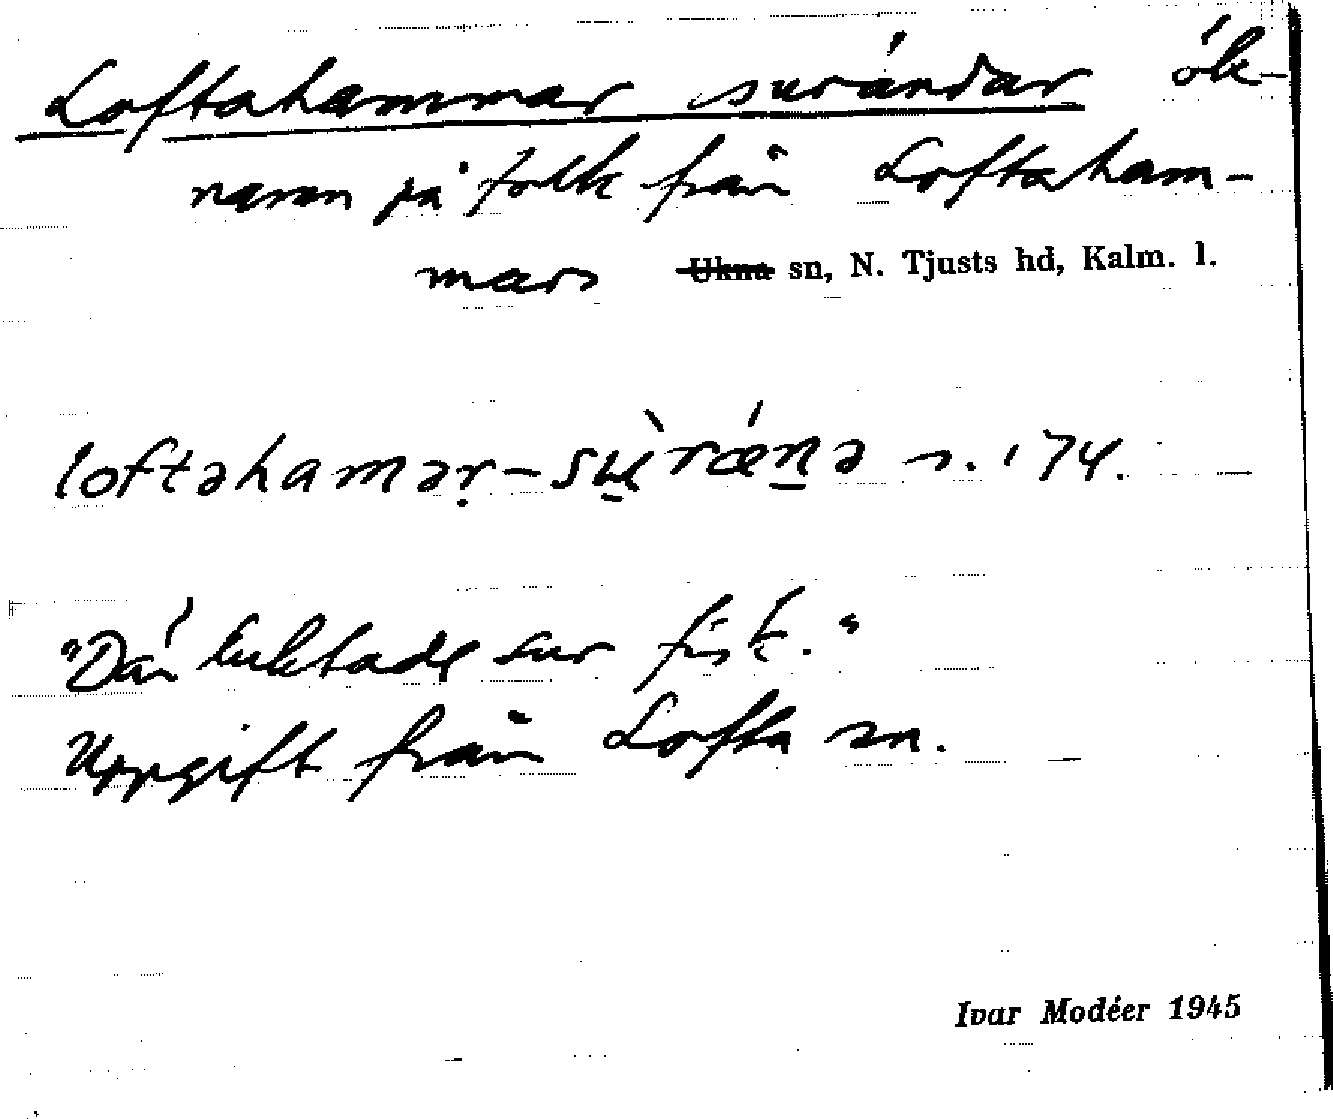 Loftahammar surändar ök-
namn på folk från Loftaham-
mars Ukna sn, N. Tjusts hd, Kalm. l.
loftəhamər-
s. 174.
"Där luktade sur fisk."
Uppgift från Lofta sn.
Ivar Modéer 1945